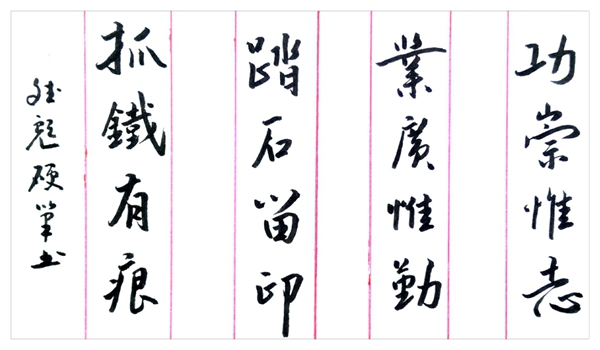 功崇惟志
業廣惟勤
踏石留印
抓鐵有痕
硬筆书